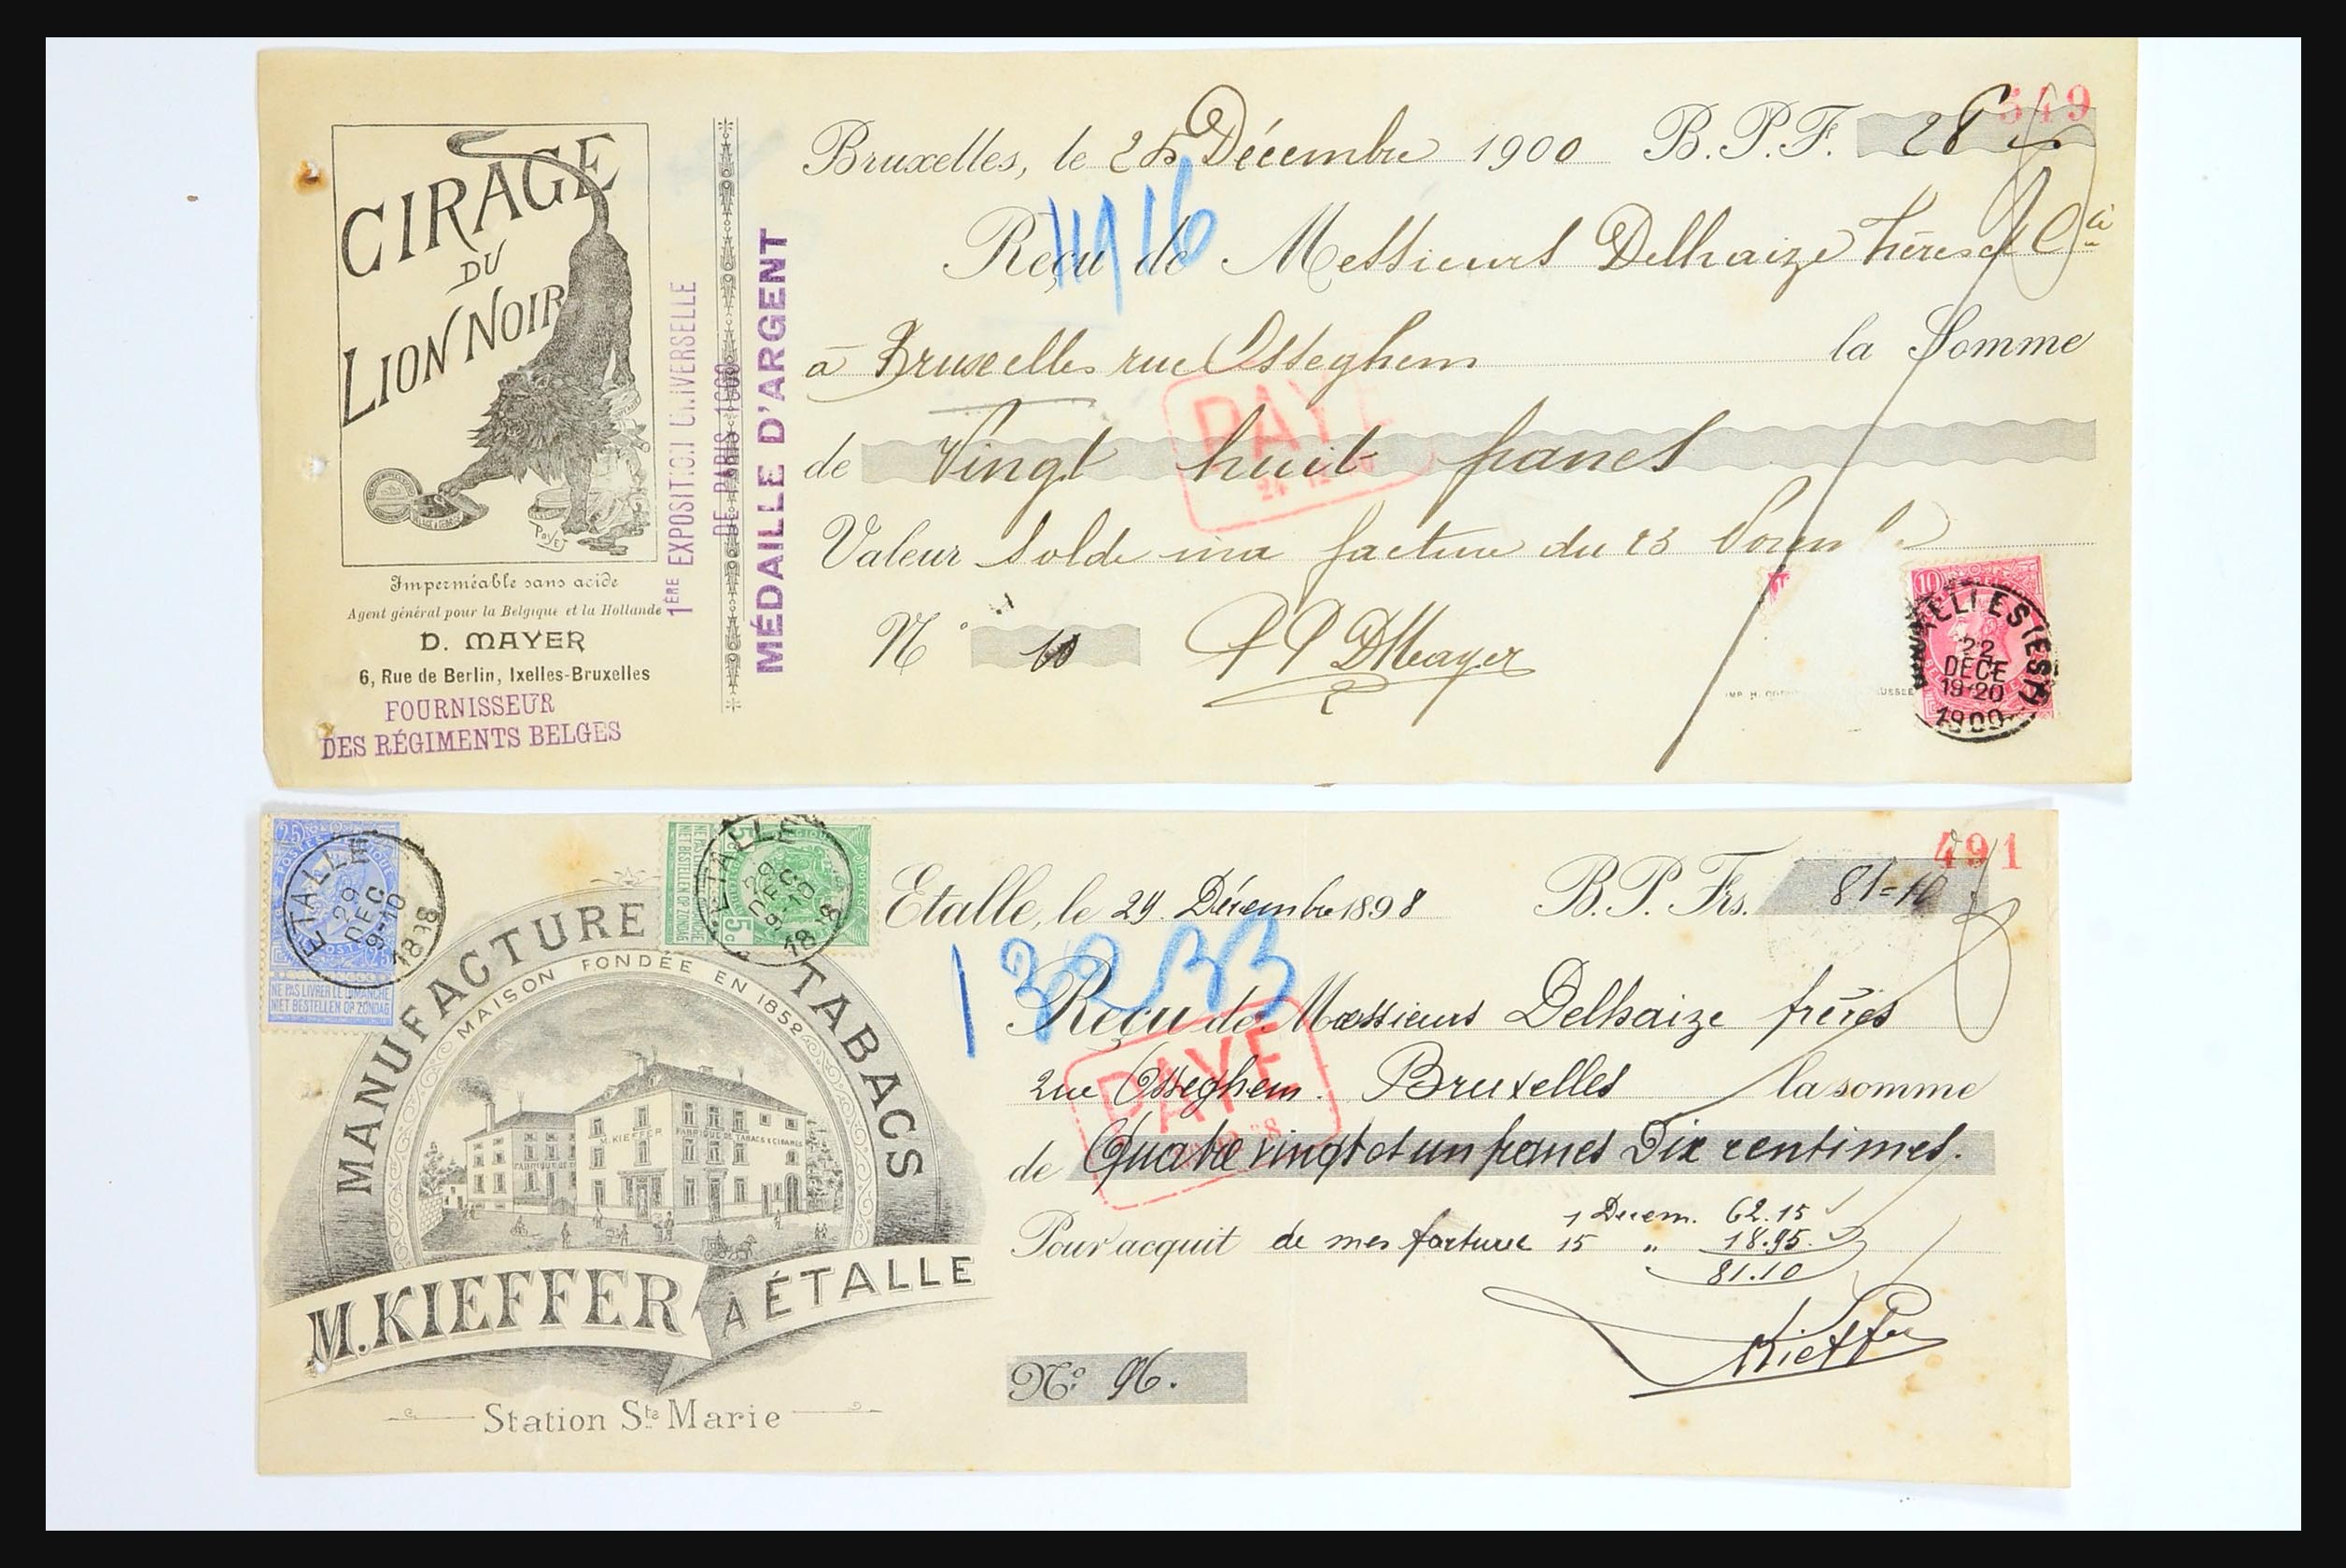 CIRAGE
DU
LION NOIR
PAYET
Imperméable sans acide
Agent général pour la Belgique et la Hollande
D. MAYER
6, Rue de Berlin, Ixelles-Bruxelles
FOURNISSEUR
DES RÉGIMENTS BELGES
1ÈRE EXPOSITION UNIVERSELLE
DE PARIS 1900
MÉDAILLE D'ARGENT
549
Bruxelles, le 25 Décembre 1900 B.P.F. 28
11916
Reçu de Messieurs Delhaize frères & Cie
à Bruxelles rue Osseghem la Somme
PAYE
de Vingt huit francs
Valeur Solde ma facture du 23
N° 10 PP DMayer
IMP. H.
10
IXELLES
22
DECE
19-20
1900
25
POSTES
ETALLE
29
DEC
9-10
1898
NE PAS LIVRER LE DIMANCHE
NIET BESTELLEN OP ZONDAG
5c
POSTES
NE PAS LIVRER LE DIMANCHE
NIET BESTELLEN OP ZONDAG
ETALLE
29
DEC
9-10
1898
MANUFACTURE TABACS
MAISON FONDÉE EN 1852
M. KIEFFER FABRIQUE DE TABACS & CIGARES
M. KIEFFER À ÉTALLE
Station Ste Marie
491
Etalle, le 29 Décembre 1898 B.P. Frs. 81=10
Reçu de Messieurs Delhaize frères
rue Osseghem. Bruxelles la somme
PAYE
de Quatre vingt et un francs Dix centimes.
Pour acquit de mes facture 1 Decem. 62.15
15 " 18.95
81.10
Kieffer
N° 96.